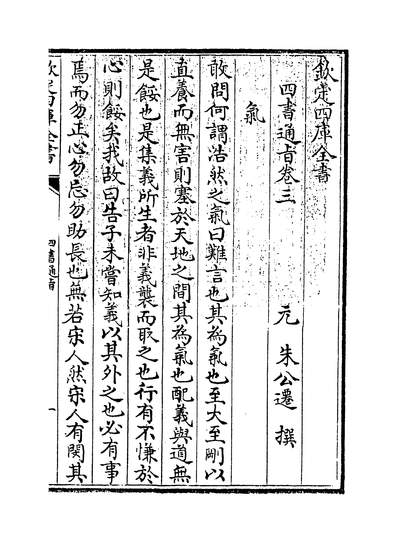 欽定四庫全書
四書通旨卷三
元 朱公遷 撰
氣
敢問何謂浩然之氣曰難言也其為氣也至大至剛以
直養而無害則塞於天地之間其為氣也配義與道無
是餒也是集義所生者非義襲而取之也行有不慊於
心則餒矣我故曰告子未嘗知義以其外之也必有事
焉而勿正心勿忘勿助長也無若宋人然宋人有閔其
欽定四庫全書
四書通旨
一